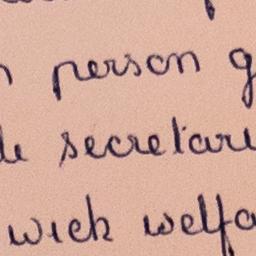 person g
secretari
wich welfa